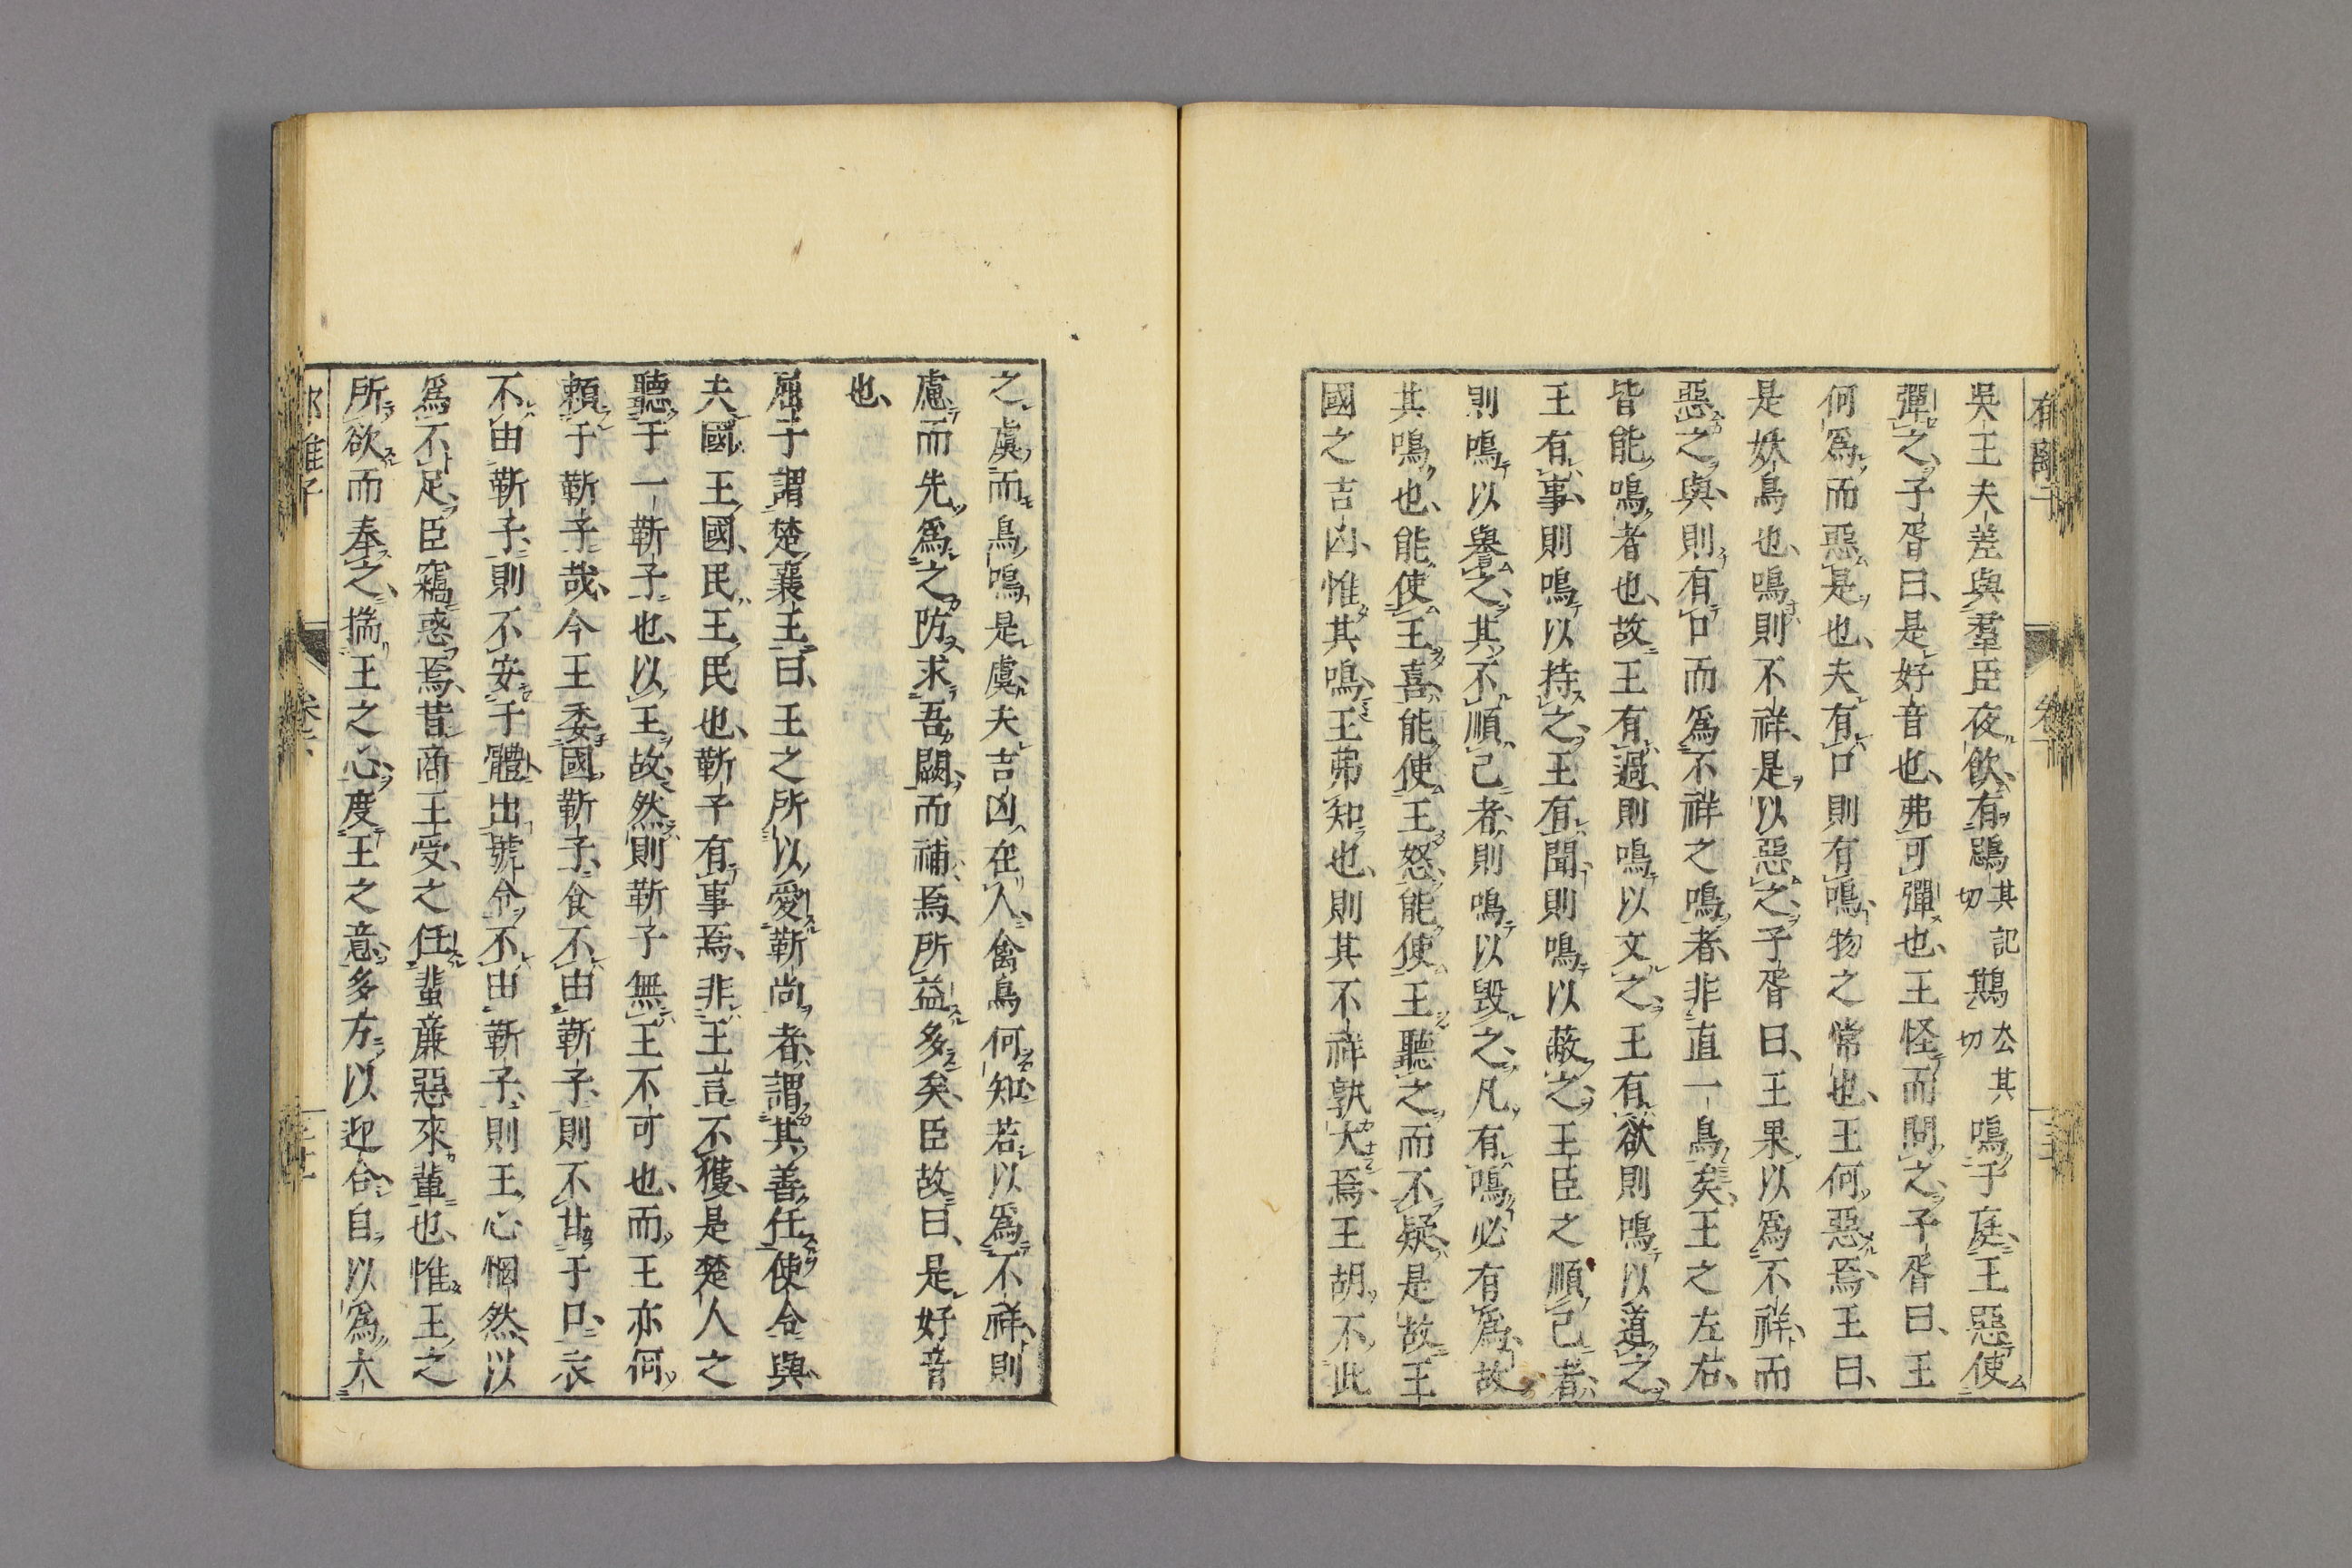 吳王夫差與羣臣夜飲有鵋其記切鶀公其切鳴于庭王惡使
彈之子胥曰是好音也弗可彈也王怪而問之子胥曰王
何爲而惡是也夫有口則有鳴物之常也王何惡焉王曰
是妖鳥也鳴則不祥是以惡之子胥曰王果以爲不祥而
惡之與則有口而爲不祥之鳴者非直一鳥矣王之左右
皆能鳴者也故王有過則鳴以文之王有欲則鳴以道之
王有事則鳴以持之王有聞則鳴以蔽之王臣之順己者
則鳴以譽之其不順己者則鳴以毀之凡有鳴必有爲故
其鳴也能使王喜能使王怒能使王聽之而不疑是故王
國之吉凶惟其鳴王弗知也則其不祥孰大焉王胡不此
之虞而鳥鳴是虞夫吉凶在人禽鳥何知若以爲不祥則
慮而先爲之防求吾闕而補焉所益多矣臣故曰是好音
也
屈子謂楚襄王曰王之所以愛靳尚者謂其善任使令與
夫國王國民王民也靳子有事焉非王言不獲是楚人之
聽于一靳子也以王故然則靳子無王不可也而王亦何
賴于靳子哉今王委國靳子食不由靳子則不甘于口衣
不由靳子則不安于體出號令不由靳子則王心悃然以
爲不足臣竊惑焉昔商王受之任蜚廉惡來輩也惟王之
所欲而奉之揣王之心度王之意多方以迎合自以爲大